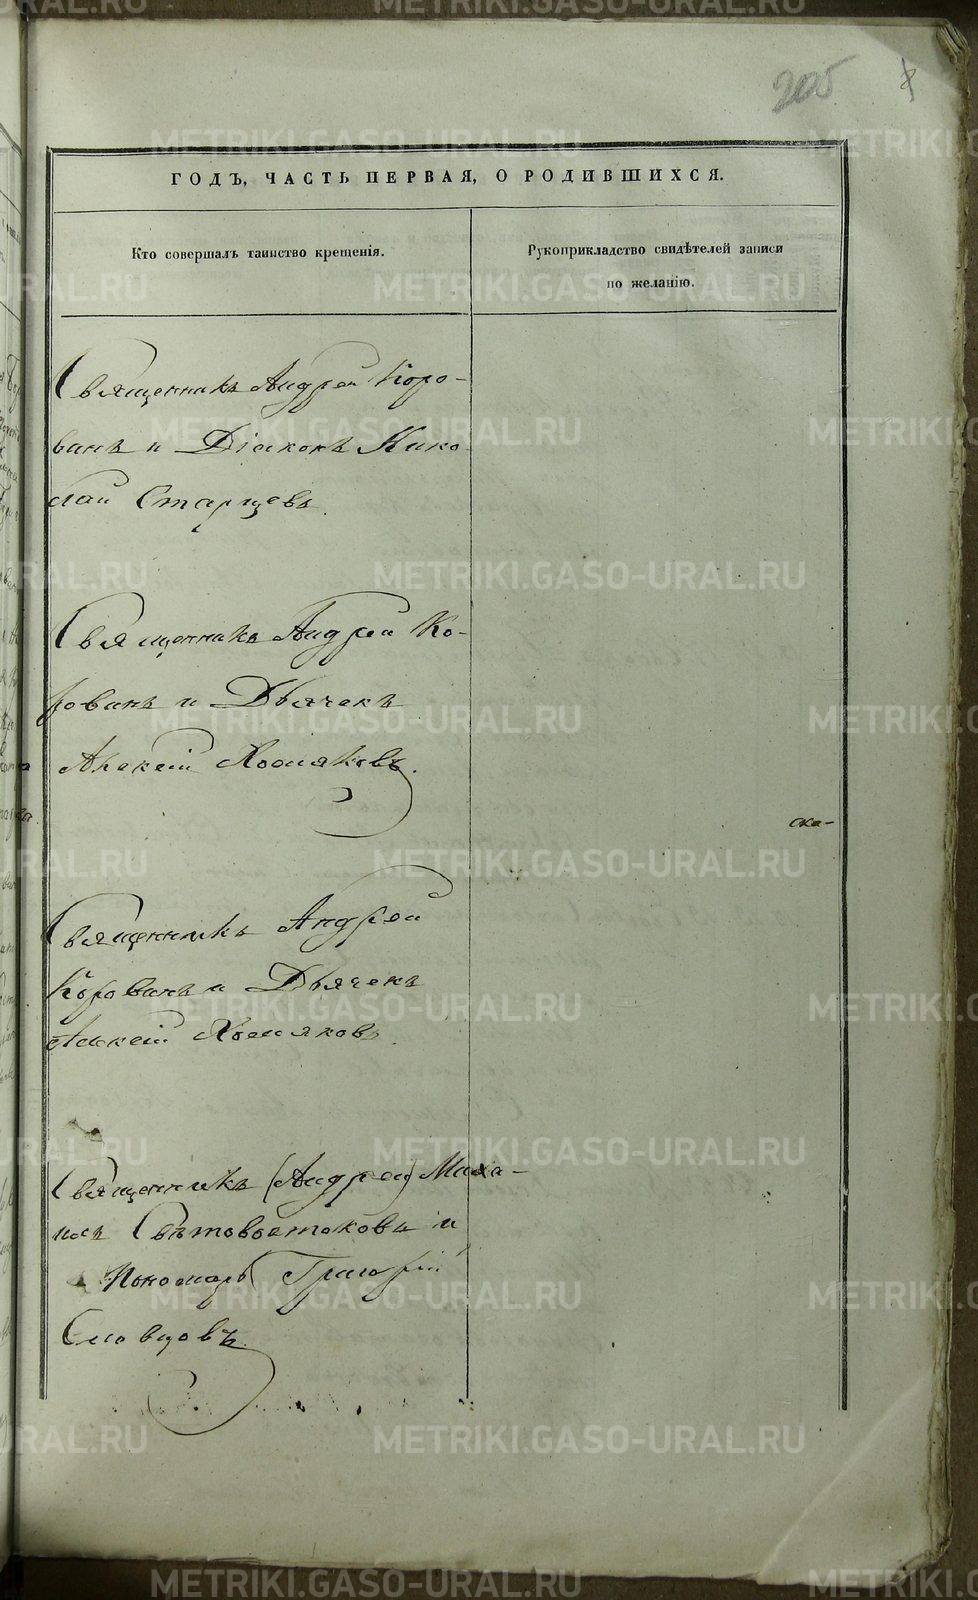 205
ГОДЪ, ЧАСТЬ ПЕРВАЯ, О РОДИВШИХСЯ.
Кто совершалъ таинство крещенія.
Рукоприкладство свидѣтелей записи
по желанію.
Священникъ Андрей Коро-
винъ и Діаконъ Нико-
лай Старцевъ.
Священникъ Андрей Ко-
ровинъ и Дьячекъ
Алексій Хомяковъ.
ска-
Священникъ Андрей
Коровинъ и Дьячекъ
Алексій Хомяковъ.
Священникъ (Андрей) Миха-
илъ Свѣтовостоковъ и
Пономарь Григорій
Словцовъ.
METRIKI.GASO-URAL.RU